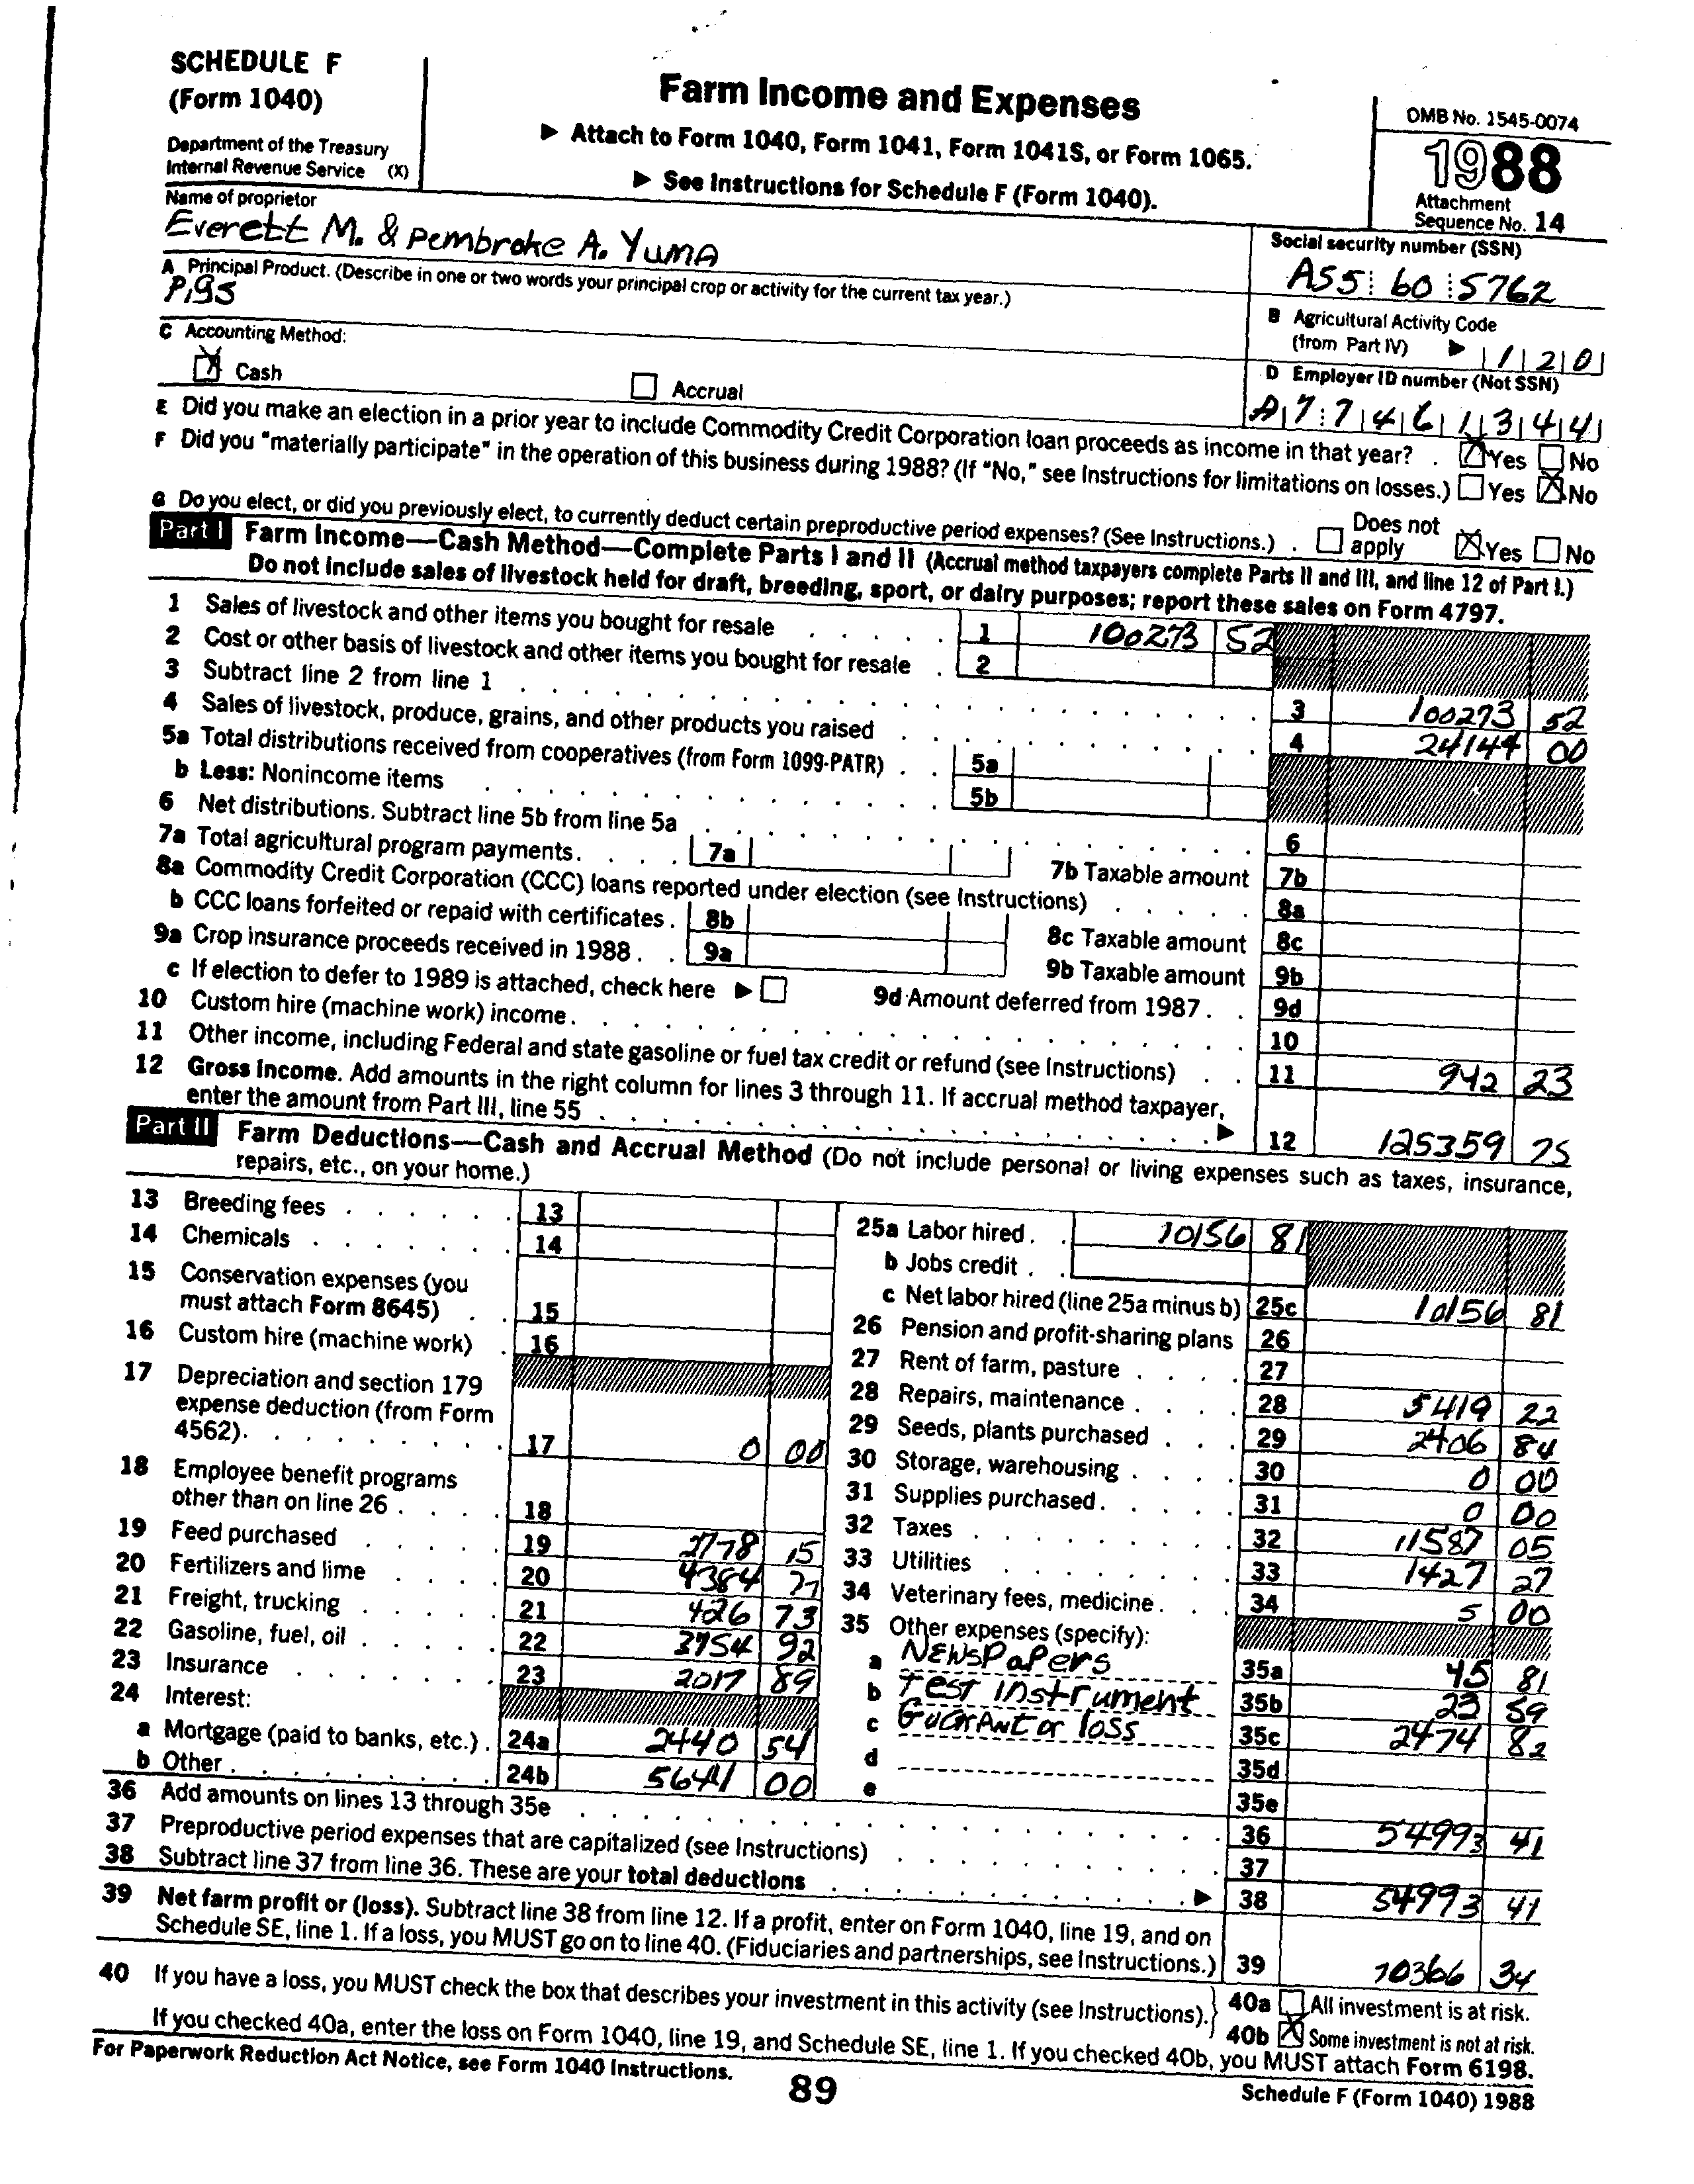 SCHEDULE F
(Form 1040)
Department of the Treasury
Internal Revenue Service (X)
Farm Income and Expenses
▶ Attach to Form 1040, Form 1041, Form 1041S, or Form 1065.
▶ See Instructions for Schedule F (Form 1040).
OMB No. 1545-0074
1988
Attachment
Sequence No. 14
Name of proprietor
Everett M. & Pembroke A. Yuma
Social security number (SSN)
A55 60 5762
A Principal Product. (Describe in one or two words your principal crop or activity for the current tax year.)
Pigs
B Agricultural Activity Code
(from Part IV) ▶ 1 2 0
C Accounting Method:
Cash Accrual
D Employer ID number (Not SSN)
A 7 7 4 6 1 3 4 4
E Did you make an election in a prior year to include Commodity Credit Corporation loan proceeds as income in that year? . Yes No
F Did you "materially participate" in the operation of this business during 1988? (If "No," see Instructions for limitations on losses.) Yes No
G Do you elect, or did you previously elect, to currently deduct certain preproductive period expenses? (See Instructions.) . Does not apply Yes No
Part I Farm Income—Cash Method—Complete Parts I and II (Accrual method taxpayers complete Parts II and III, and line 12 of Part I.)
Do not include sales of livestock held for draft, breeding, sport, or dairy purposes; report these sales on Form 4797.
1 Sales of livestock and other items you bought for resale 1 100273 52
2 Cost or other basis of livestock and other items you bought for resale 2
3 Subtract line 2 from line 1 3 100273 52
4 Sales of livestock, produce, grains, and other products you raised 4 24144 00
5a Total distributions received from cooperatives (from Form 1099-PATR) 5a
b Less: Nonincome items 5b
6 Net distributions. Subtract line 5b from line 5a 6
7a Total agricultural program payments. 7a 7b Taxable amount 7b
8a Commodity Credit Corporation (CCC) loans reported under election (see Instructions) 8a
b CCC loans forfeited or repaid with certificates . 8b 8c Taxable amount 8c
9a Crop insurance proceeds received in 1988 . 9a 9b Taxable amount 9b
c If election to defer to 1989 is attached, check here ▶ 9d Amount deferred from 1987 . 9d
10 Custom hire (machine work) income. 10
11 Other income, including Federal and state gasoline or fuel tax credit or refund (see Instructions) 11 942 23
12 Gross Income. Add amounts in the right column for lines 3 through 11. If accrual method taxpayer,
enter the amount from Part III, line 55 ▶ 12 125359 75
Part II Farm Deductions—Cash and Accrual Method (Do not include personal or living expenses such as taxes, insurance,
repairs, etc., on your home.)
13 Breeding fees 13
14 Chemicals 14
15 Conservation expenses (you
must attach Form 8645) 15
16 Custom hire (machine work) 16
17 Depreciation and section 179
expense deduction (from Form
4562). 17 0 00
18 Employee benefit programs
other than on line 26 18
19 Feed purchased 19 2778 15
20 Fertilizers and lime 20 4384 77
21 Freight, trucking 21 426 73
22 Gasoline, fuel, oil 22 3754 92
23 Insurance 23 2017 89
24 Interest:
a Mortgage (paid to banks, etc.) . 24a 2440 54
b Other 24b 5641 00
25a Labor hired . 10156 81
b Jobs credit .
c Net labor hired (line 25a minus b) 25c 10156 81
26 Pension and profit-sharing plans 26
27 Rent of farm, pasture 27
28 Repairs, maintenance 28 5419 22
29 Seeds, plants purchased 29 2406 84
30 Storage, warehousing 30 0 00
31 Supplies purchased . 31 0 00
32 Taxes 32 11587 05
33 Utilities 33 1427 27
34 Veterinary fees, medicine . 34 5 00
35 Other expenses (specify):
a Newspapers 35a 45 81
b Test instrument 35b 23 59
c Guarantor loss 35c 2474 82
d 35d
e 35e
36 Add amounts on lines 13 through 35e 36 54993 41
37 Preproductive period expenses that are capitalized (see Instructions) 37
38 Subtract line 37 from line 36. These are your total deductions ▶ 38 54993 41
39 Net farm profit or (loss). Subtract line 38 from line 12. If a profit, enter on Form 1040, line 19, and on
Schedule SE, line 1. If a loss, you MUST go on to line 40. (Fiduciaries and partnerships, see Instructions.) 39 70366 34
40 If you have a loss, you MUST check the box that describes your investment in this activity (see Instructions). 40a All investment is at risk.
40b Some investment is not at risk.
If you checked 40a, enter the loss on Form 1040, line 19, and Schedule SE, line 1. If you checked 40b, you MUST attach Form 6198.
For Paperwork Reduction Act Notice, see Form 1040 Instructions.
89
Schedule F (Form 1040) 1988